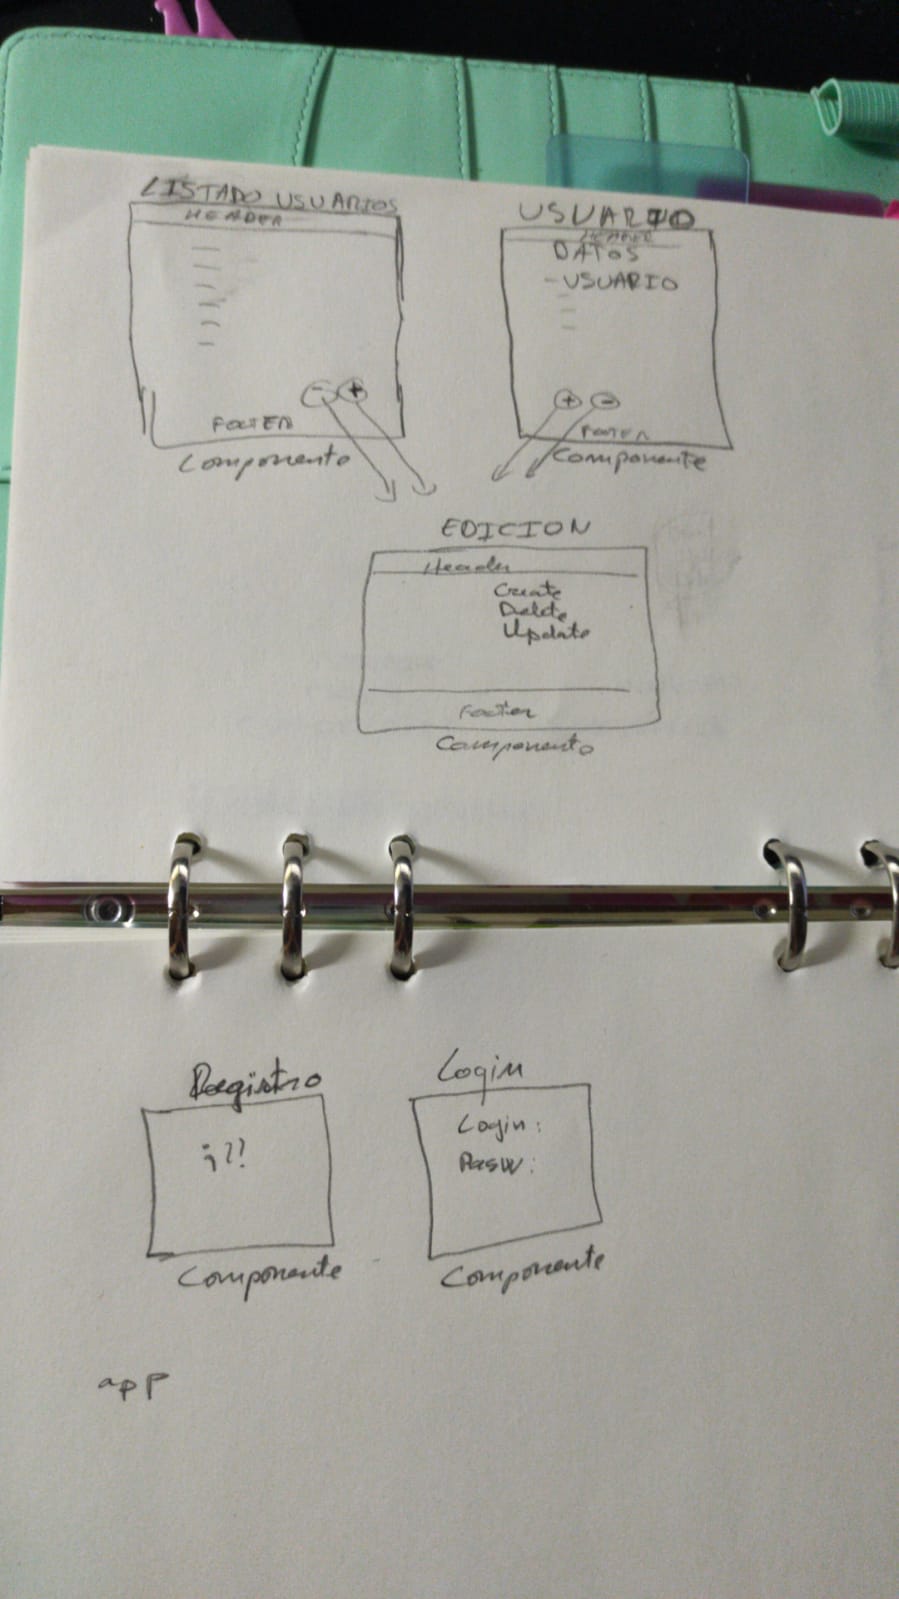 LISTADO USUARIOS
HEADER
- +
FOOTER
Componente
USUARIO
HEADER
DATOS
- USUARIO
+ -
FOOTER
Componente
EDICION
Header
Create
Delete
Update
Footer
Componente
Registro
¿??
Componente
Login
Login:
Pasw:
Componente
app